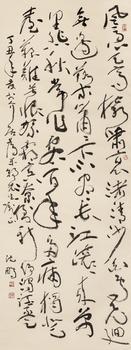 風急天高猿嘯哀渚清沙白鳥飛迴
無邊落木蕭蕭下不盡長江滾滾來萬
里悲秋常作客百年多病獨登
臺艱難苦恨繁霜鬢潦倒新停濁酒杯
丁丑年
沈鵬